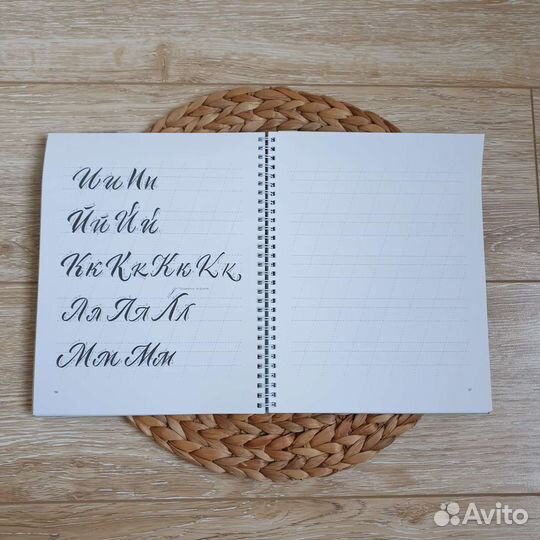 Ии Ии
Йй Йй
Кк Кк Кк Кк
Лл Лл Лл
Мм Мм
Avito